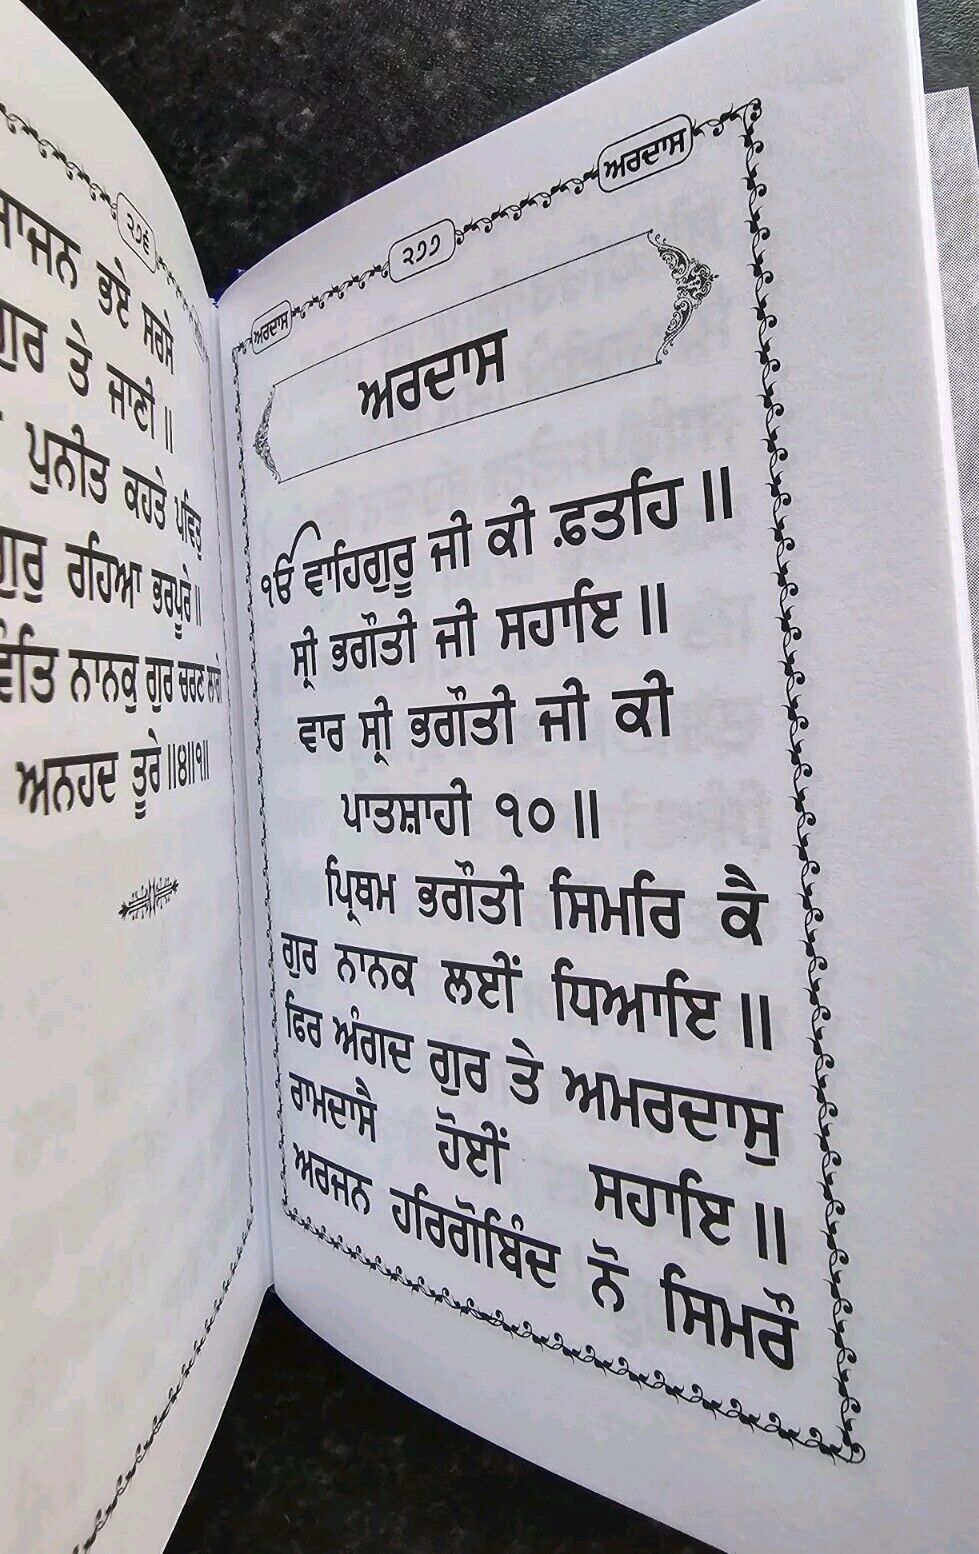 ੨੭੬
ਭਏ ਸਰਸੇ
ਤੇ ਜਾਣੀ॥
ਪੁਨੀਤ ਕਹਤੇ ਪਵਿਤੁ
ਰਹਿਆ ਭਰਪੂਰੇ॥
ਨਾਨਕੁ ਗੁਰ ਚਰਣ ਲਾਗੇ
ਅਨਹਦ ਤੂਰੇ॥੪॥੧॥
ਅਰਦਾਸ ੨੭੭ ਅਰਦਾਸ
ਅਰਦਾਸ
ੴ ਵਾਹਿਗੁਰੂ ਜੀ ਕੀ ਫ਼ਤਹਿ॥
ਸ੍ਰੀ ਭਗੌਤੀ ਜੀ ਸਹਾਇ॥
ਵਾਰ ਸ੍ਰੀ ਭਗੌਤੀ ਜੀ ਕੀ
ਪਾਤਸ਼ਾਹੀ ੧੦॥
ਪ੍ਰਿਥਮ ਭਗੌਤੀ ਸਿਮਰਿ ਕੈ
ਗੁਰ ਨਾਨਕ ਲਈਂ ਧਿਆਇ॥
ਫਿਰ ਅੰਗਦ ਗੁਰ ਤੇ ਅਮਰਦਾਸੁ
ਰਾਮਦਾਸੈ ਹੋਈਂ ਸਹਾਇ॥
ਅਰਜਨ ਹਰਿਗੋਬਿੰਦ ਨੋ ਸਿਮਰੌ